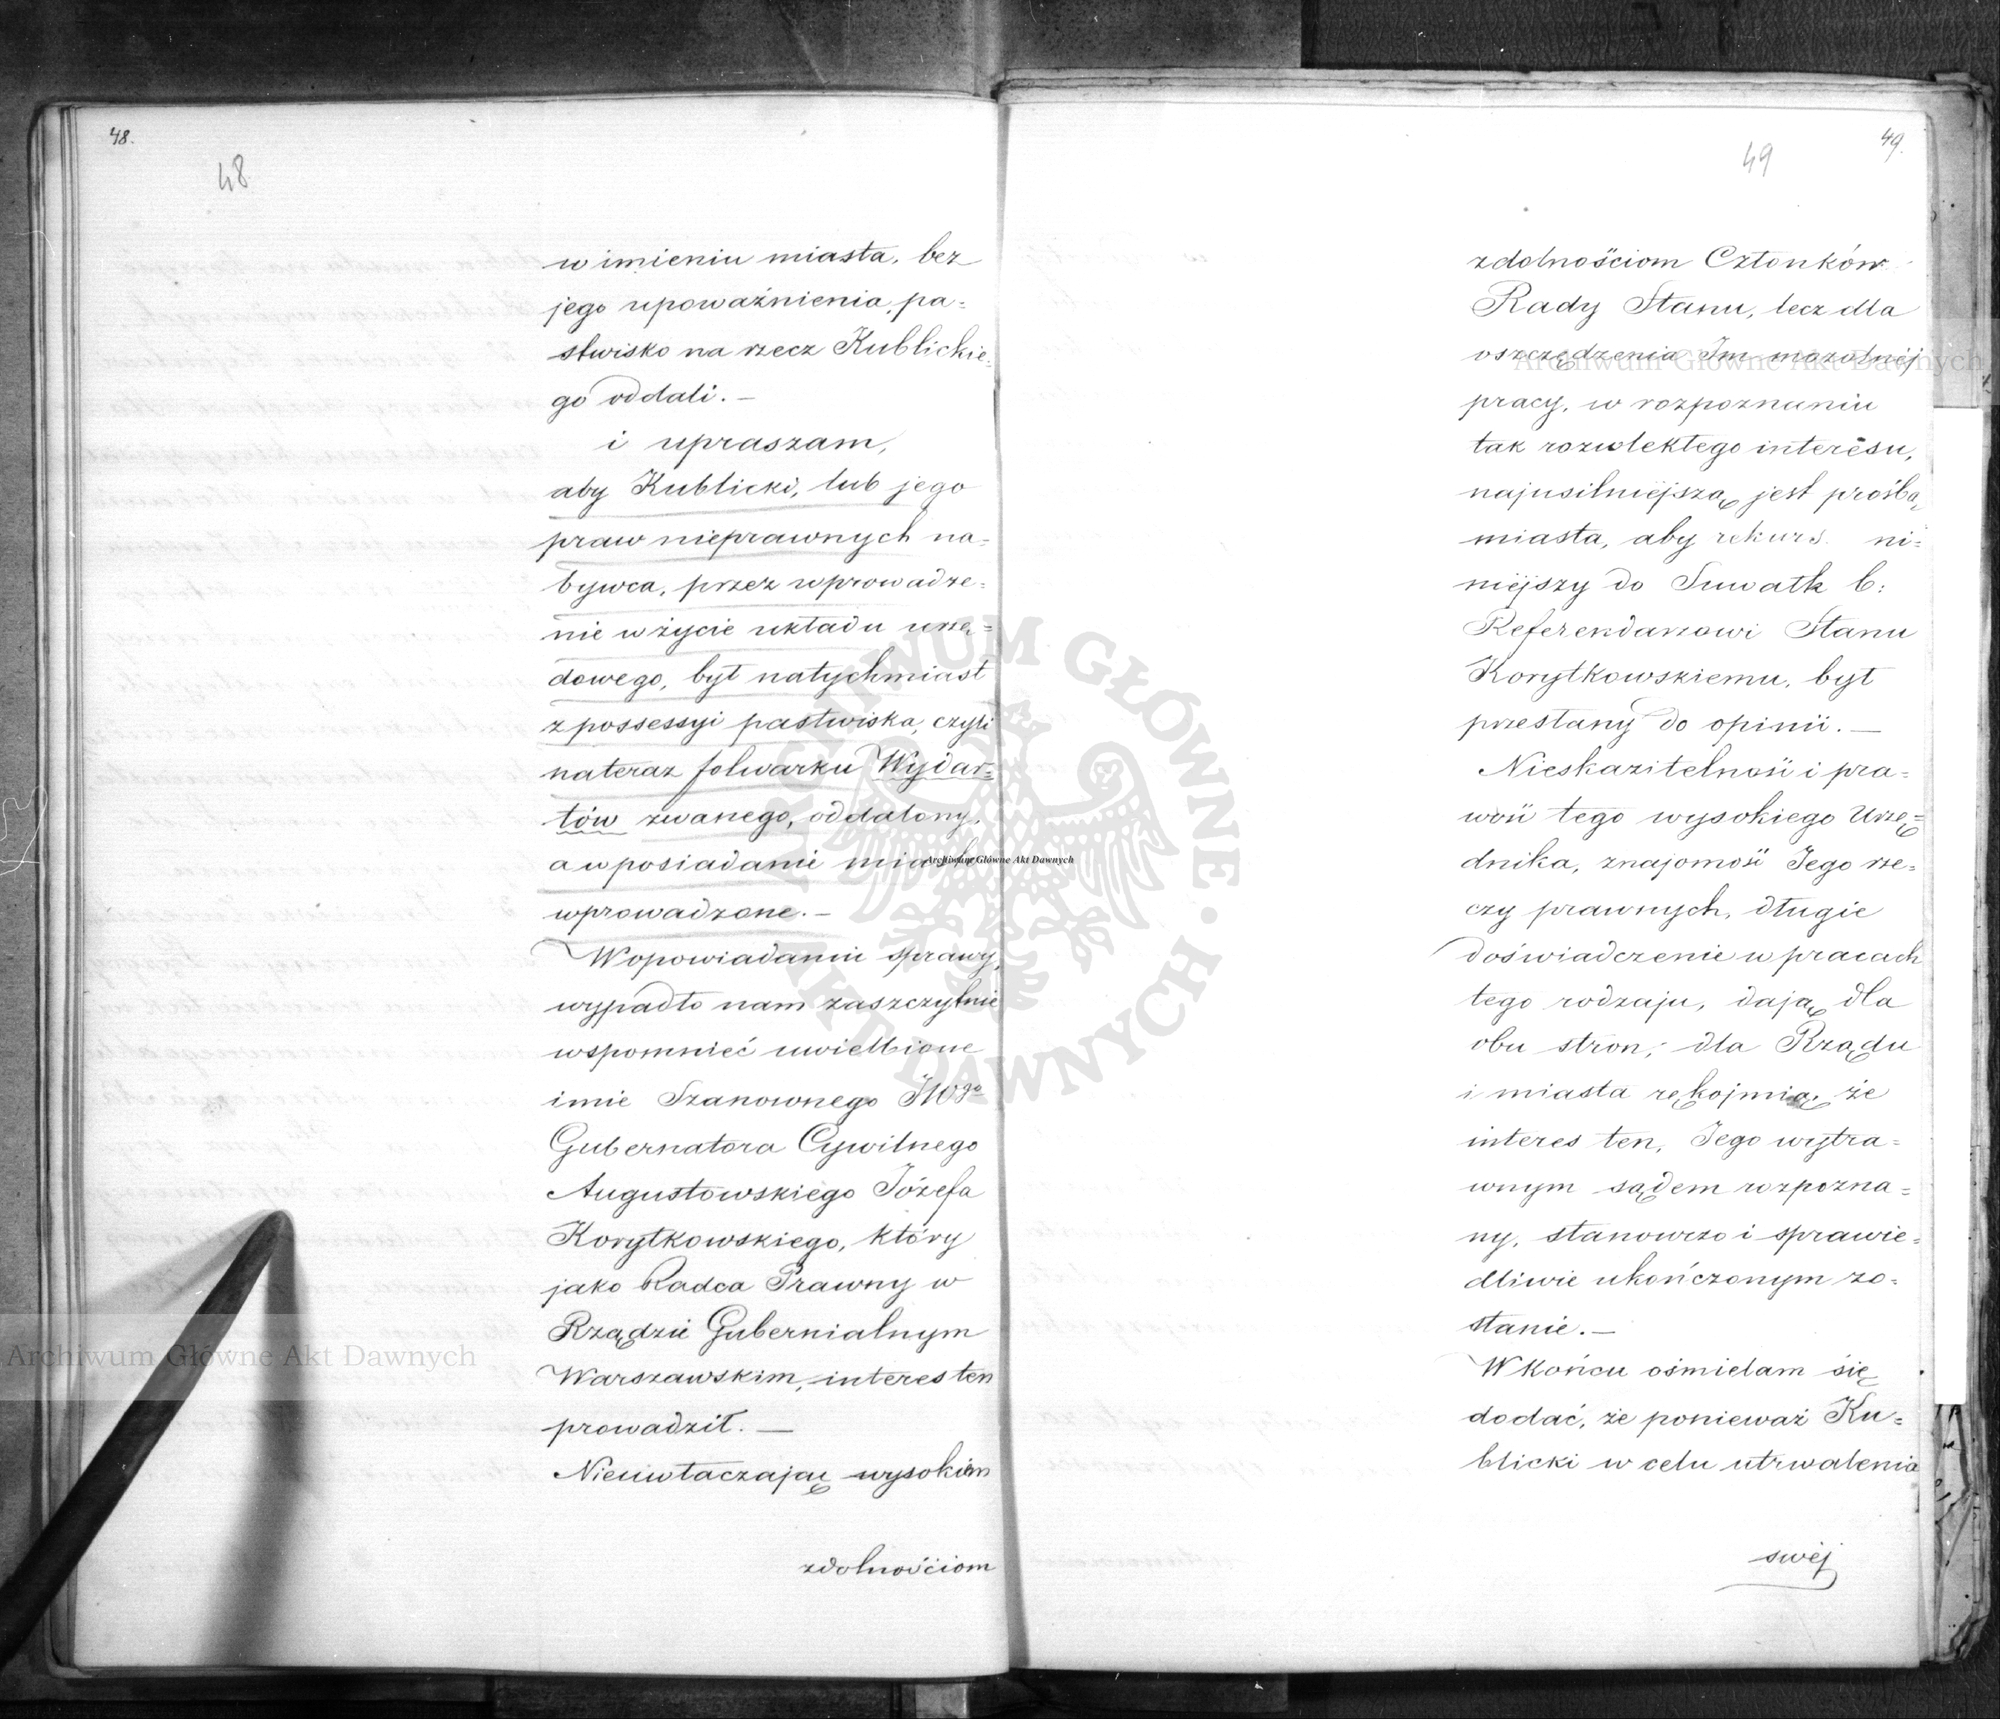 48.
48
w imieniu miasta, bez
jego upoważnienia, pa=
stwisko na rzecz Kublickie=
go oddali. —
i upraszam,
aby Kublicki, lub jego
praw nieprawnych na=
bywca, przez wprowadze=
nie w życie układu urzę=
dowego, był natychmiast
z possessyi pastwiska, czyli
nateraz folwarku Wydar=
tów zwanego, oddalony,
a w posiadanie miasto
wprowadzone. —
W opowiadaniu sprawy,
wypadło nam zaszczytnie
wspomnieć uwielbione
imie Szanownego JWgo
Gubernatora Cywilnego
Augustowskiego Józefa
Korytkowskiego, który
jako Radca Prawny w
Rządzie Gubernialnym
Warszawskim, interes ten
prowadził. —
Nieuwłaczając wysokim
zdolnościom
49.
49
zdolnościom Członków
Rady Stanu, lecz dla
oszczędzenia Im mozolnéj
pracy, w rozpoznaniu
tak rozwlekłego interesu,
najusilniejszą jest prośbą
miasta, aby rekurs ni=
niejszy do Suwałk b:
Referendarzowi Stanu
Korytkowskiemu, był
przesłany do opinii. —
Nieskazitelność i pra=
wość tego wysokiego Urzę=
dnika, znajomość Jego rze=
czy prawnych, długie
doświadczenie w pracach
tego rodzaju, dają dla
obu stron, dla Rządu
i miasta rękojmią, że
interes ten, Jego wytra=
wnym sądem rozpozna=
ny, stanowczo i sprawie=
dliwie ukończonym zo=
stanie. —
W końcu ośmielam się
dodać, że ponieważ Ku=
blicki w celu utrwalenia
swéj
Archiwum Główne Akt Dawnych
Archiwum Główne Akt Dawnych
Archiwum Główne Akt Dawnych
ARCHIWUM GŁÓWNE · AKT DAWNYCH ·